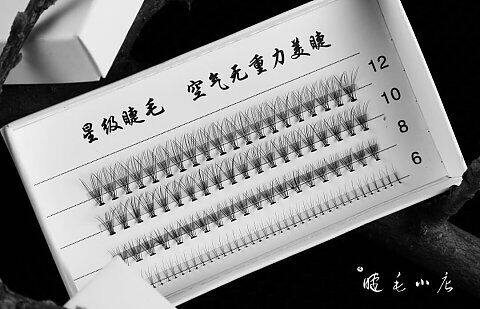 星级睫毛 空气无重力美睫
12
10
8
6
睫毛小店